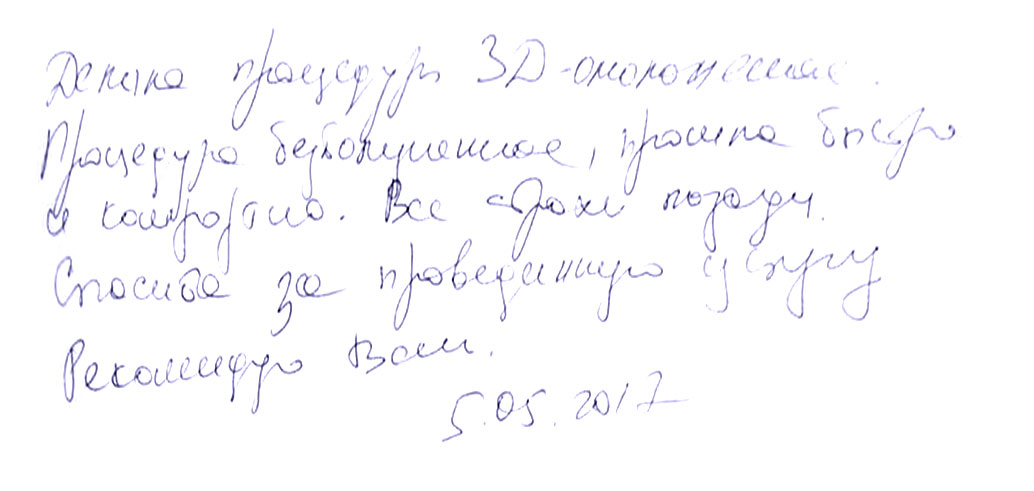 Делала процедуру 3D-омоложение.
Процедура безболезненная, прошла быстро
и комфортно. Все страхи позади.
Спасибо за проведенную услугу
Рекомендую Вам.
5.05.2017